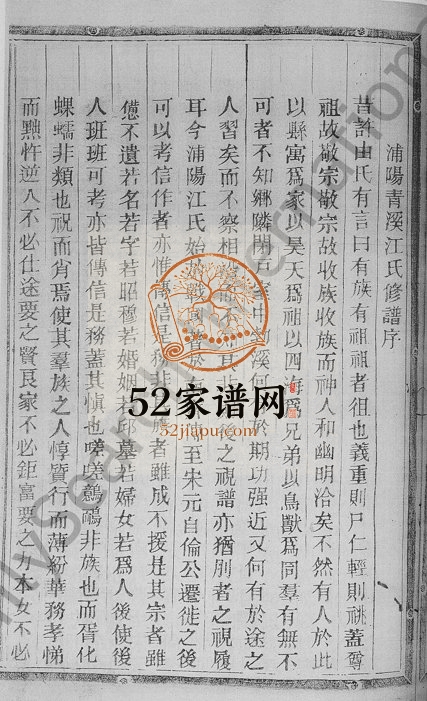 浦陽青溪江氏修譜序
昔許由氏有言曰有族有祖祖者徂也義重則尸仁輕則祧蓋尊
祖故敬宗敬宗故收族收族而神人和幽明洽矣不然有人於此
以縣寓為家以昊天為祖以四海為兄弟以鳥獸為同羣有無不
可者不知鄉隣門戶室中勃溪何於期功強近又何有於途之
人習矣而不察相後之視譜亦猶刖者之視履
耳今浦陽江氏始至宋元自倫公遷徙之後
可以考信作者亦惟傳信是務非者雖成不援是其宗者雖
憊不遺若名若字若昭穆若婚姻若邱墓若婦女若為人後使後
人班班可考亦皆傳信是務蓋其慎也嗟嗟鸛鵒非族也而胥化
蜾蠕非類也祝而肖焉使其羣族之人惇實行而薄紛華務孝悌
而黜忤逆人不必仕途要之賢良家不必鉅富要之力本女不必
52家谱网
52jiapu.com